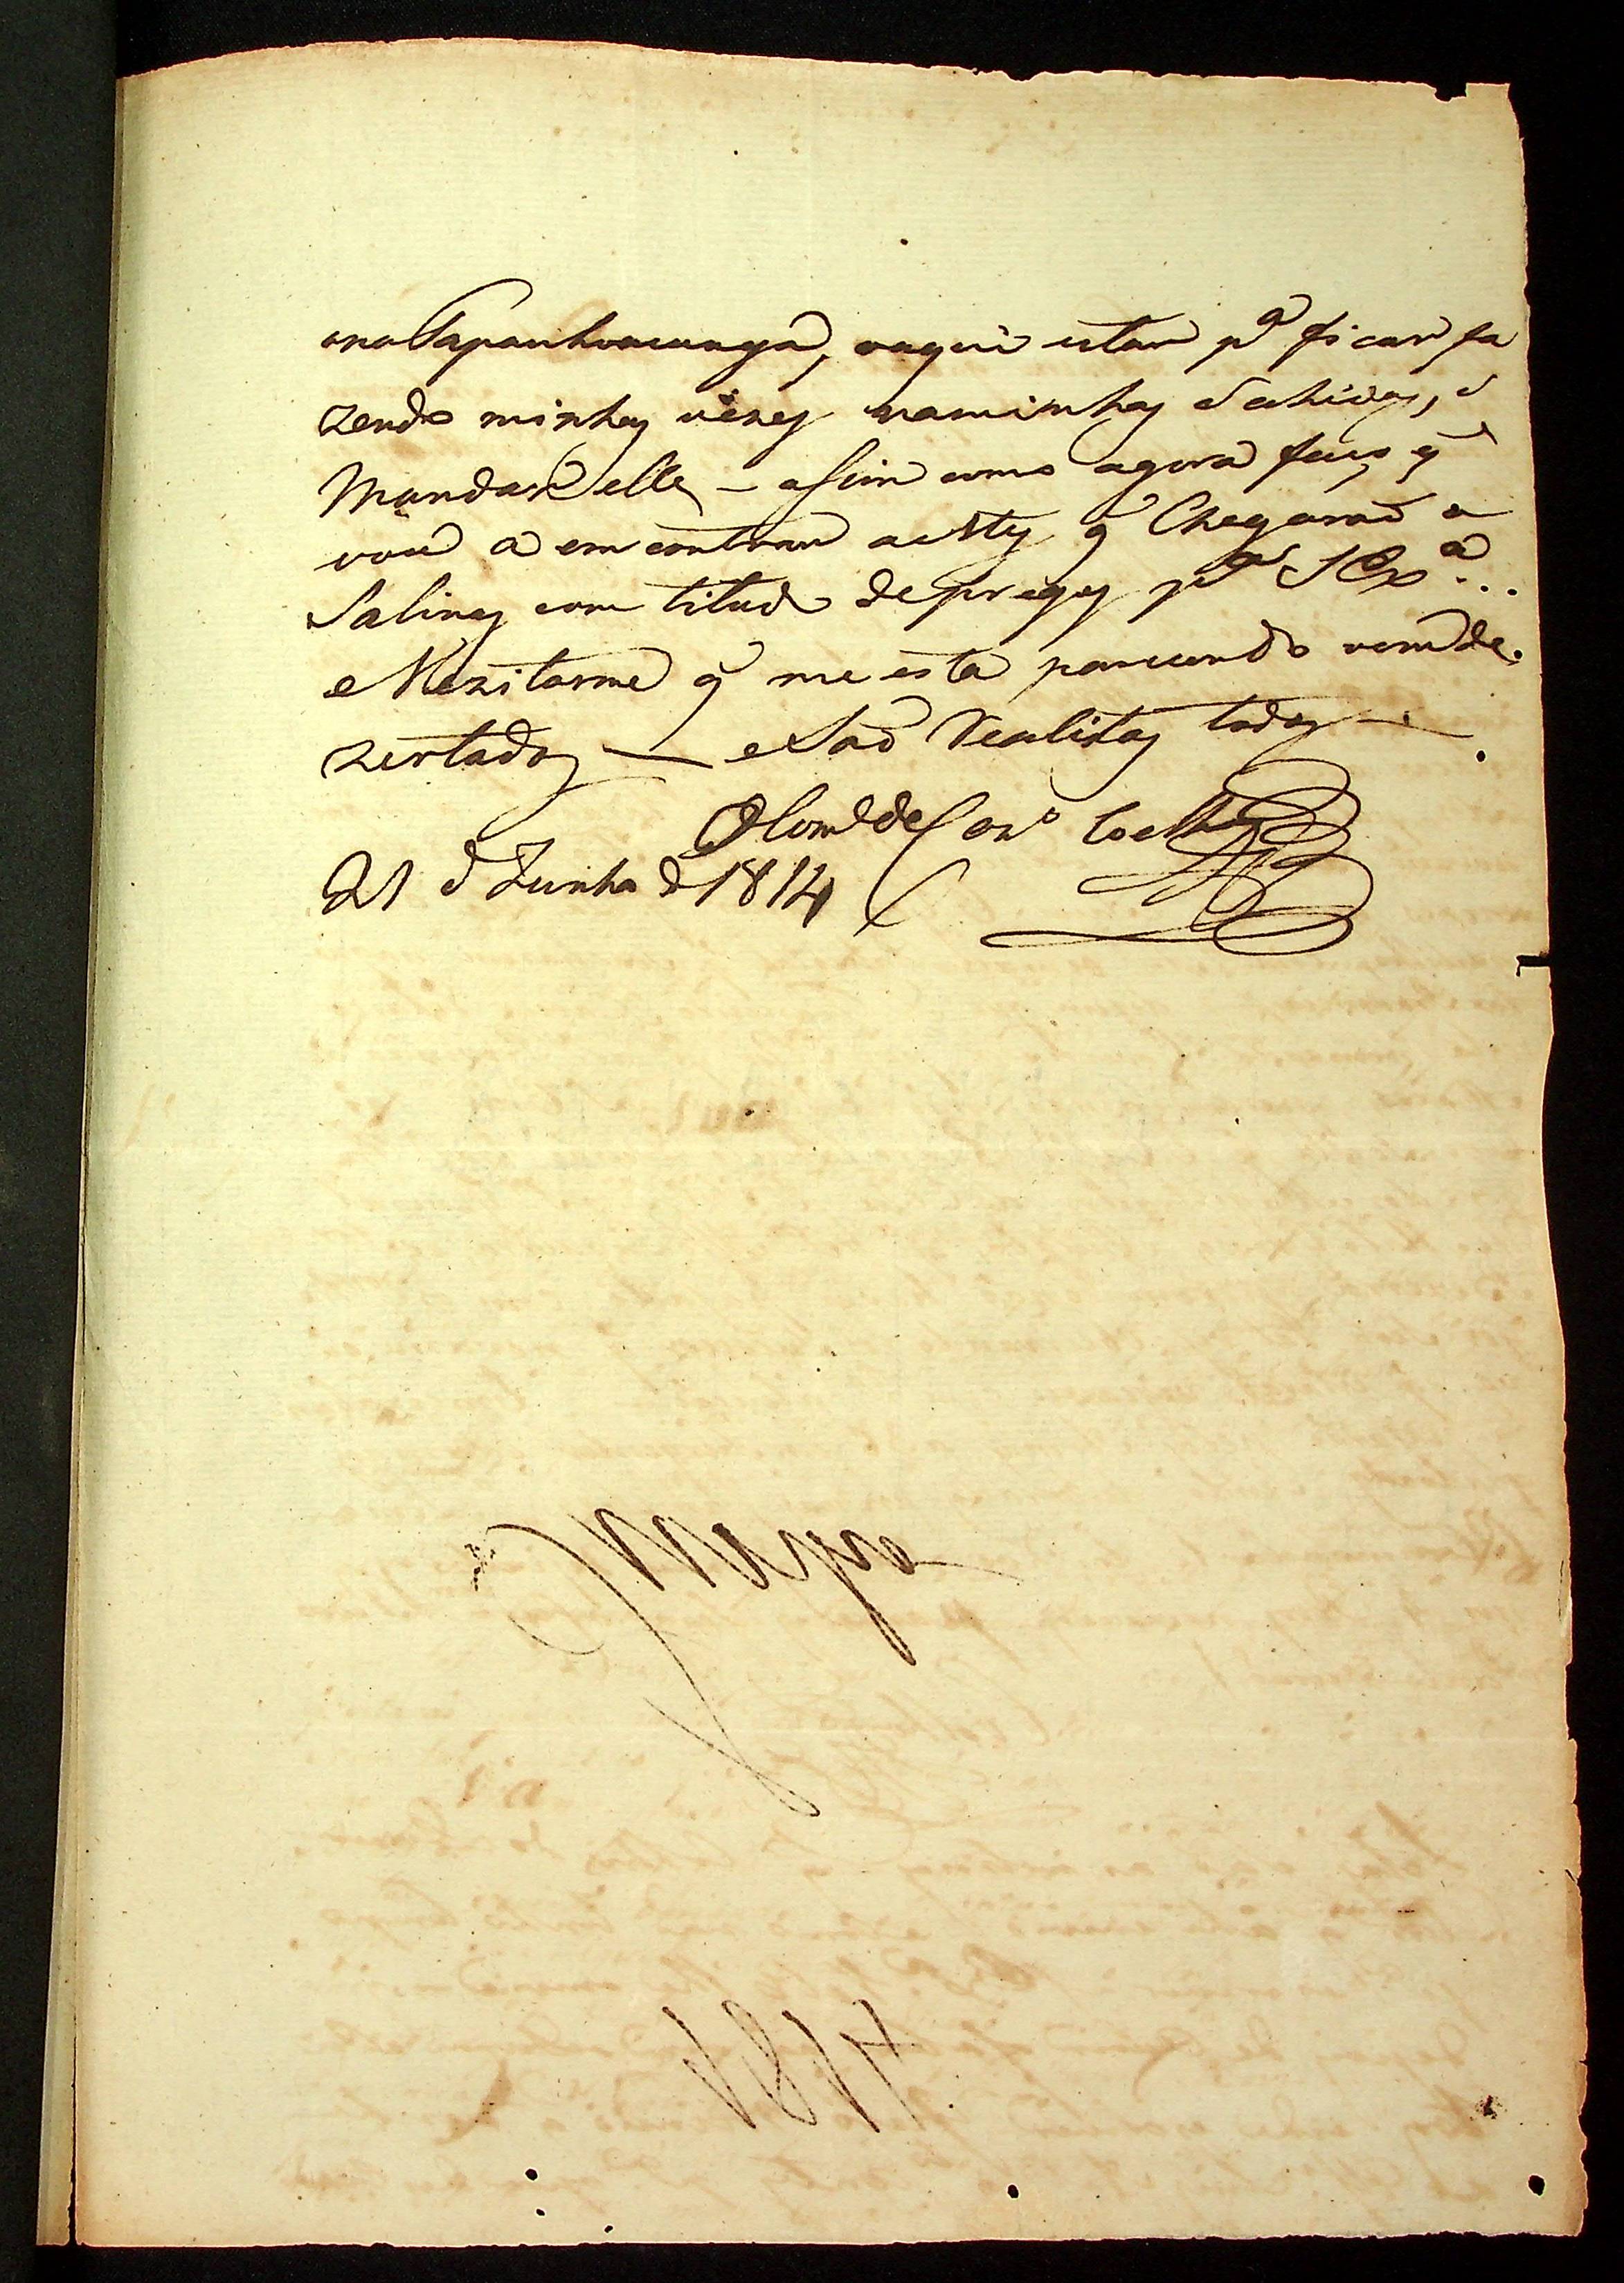 ona Tapanhoacanga, eaqui estar pª ficar fa
zendo minhas vezes naminhas Sahidas, e
Mandar elles – asim como agora faço q̃
vou a emcontrar aestes q̃ Chegaraõ a
Salinas com titulo depregos pª SExª..
eMezitarme q̃ me esta parecendo vem de.
zertados — eSaõ Realistas todos —
21 d Junho d 1814
1814